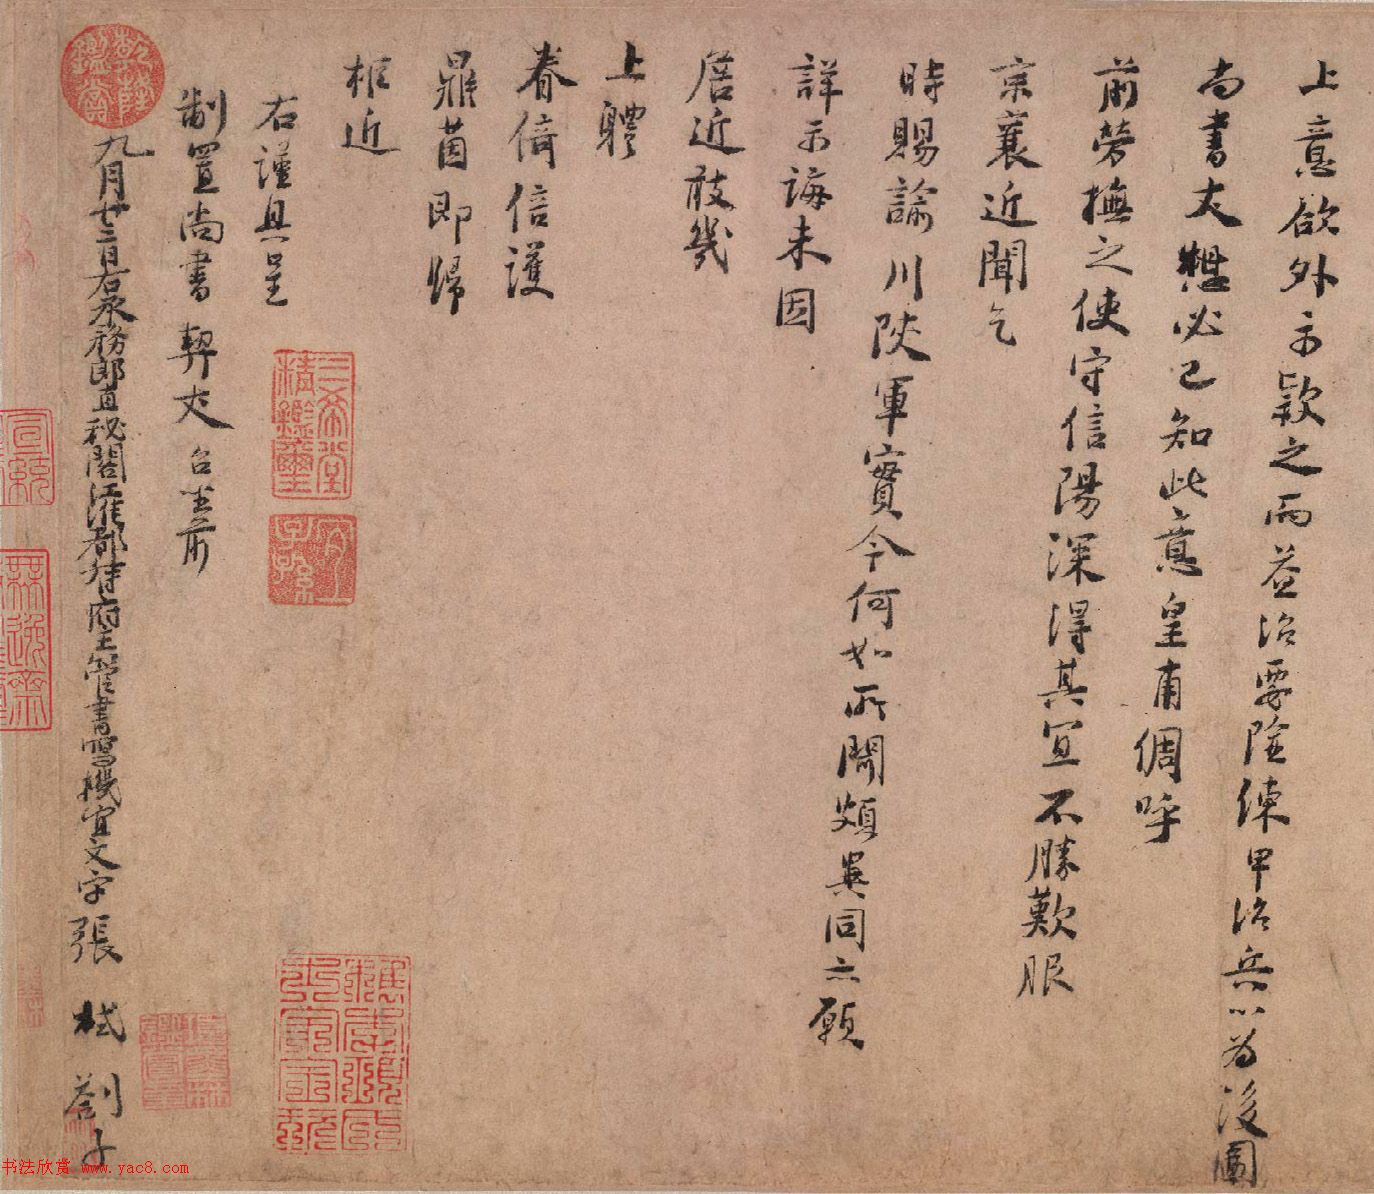 上意欲外示欵之而益治要险練甲治兵以为後圖
尚書大
必已知此意皇甫倜呼
前勞撫之使守信陽深得其宜不勝歎服
京襄近聞乞
時賜諭川陝軍實今何如所聞頗異同亦願
詳示誨未因
居近敢幾
上體
眷倚倍護
鼎茵即歸
柩近
右謹具呈
制置尚書 契丈 台坐前
九月廿二日右承務郎直秘閣 都督府主管書寫機宜文字張 栻 劄子
三希堂精鑑璽
宜子孫
乾隆鑑賞
無逸齋
书法欣赏 www.yac8.com